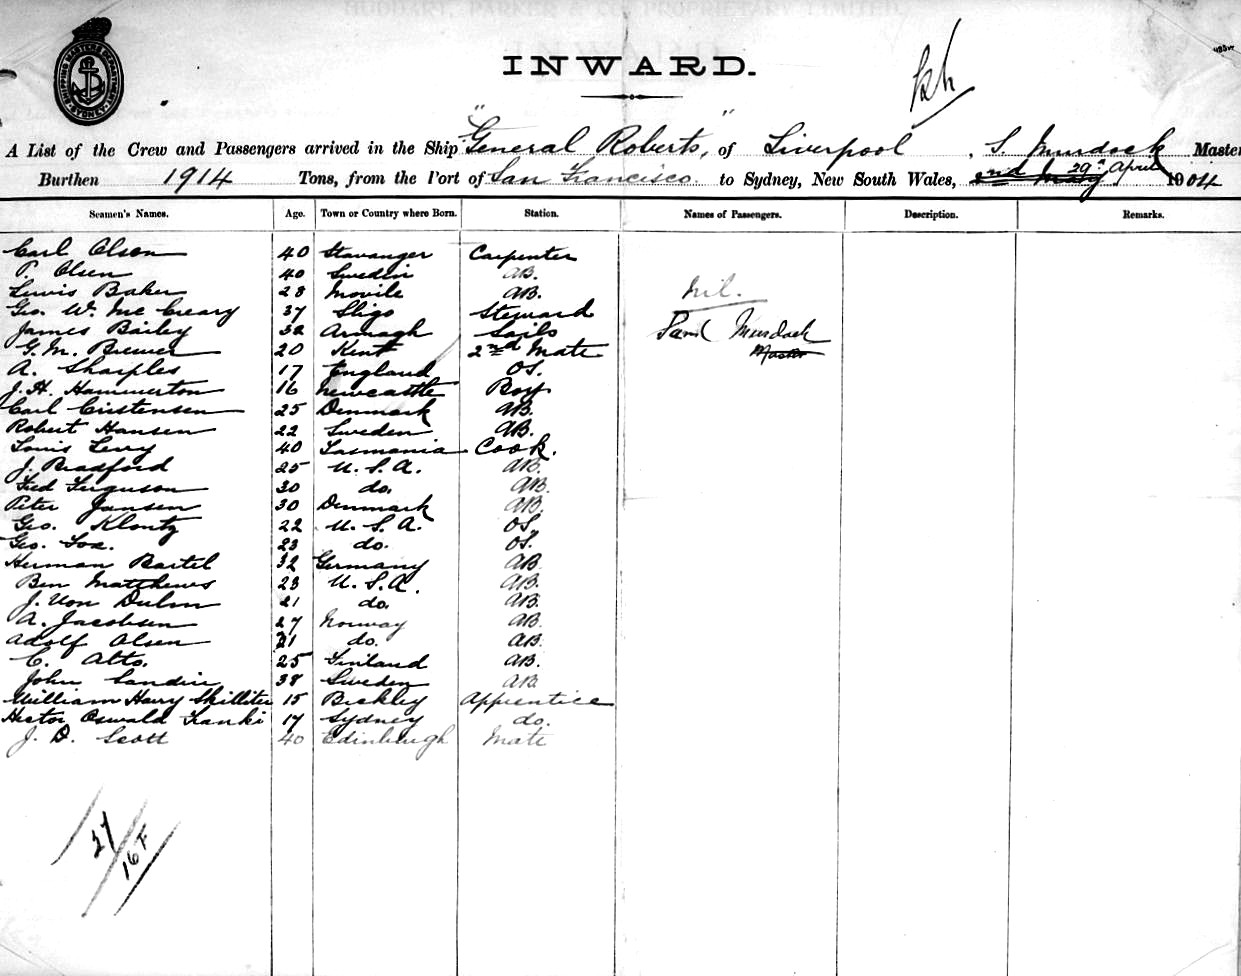 INWARD.
SHIPPING MASTERS DEPARTMENT SYDNEY
A List of the Crew and Passengers arrived in the Ship "General Roberts," of Liverpool, S. Murdock Master
Burthen 1914 Tons, from the Port of San Francisco to Sydney, New South Wales, 2nd May 29th April 1904
Seamen's Names. Age. Town or Country where Born. Station. Names of Passengers. Description. Remarks.
Carl Olsen 40 Stavanger Carpenter
P. Olsen 40 Sweden AB.
Lewis Baker 28 Movile AB. Nil.
Geo. W. Mc Creary 37 Sligo Steward
James Bailey 32 Armagh Sails Saml Murdoch
G. M. Brewer 20 Kent 2nd Mate Master
A. Sharples 17 England OS.
J. H. Hammerton 16 Newcastle Boy
Carl Cristensen 25 Denmark AB.
Robert Hansen 22 Sweden AB.
Louis Levy 40 Tasmania Cook.
J. Bradford 25 U.S.A. AB.
Fred Ferguson 30 do. AB.
Peter Jansen 30 Denmark AB.
Geo. Klontz 22 U.S.A. OS.
Geo. Fox. 23 do. OS.
Herman Bartel 32 Germany AB.
Ben Matthews 23 U.S.A. AB.
J. Von Dulm 21 do. AB.
A. Jacobsen 27 Norway AB.
Adolf Olsen 21 do. AB.
C. Alto. 25 Finland AB.
John Sandin 38 Sweden AB.
William Harry Skilliter 15 Bickley Apprentice
Hector Oswald Franki 17 Sydney do.
J. D. Scott 40 Edinburgh Mate
27
16 F